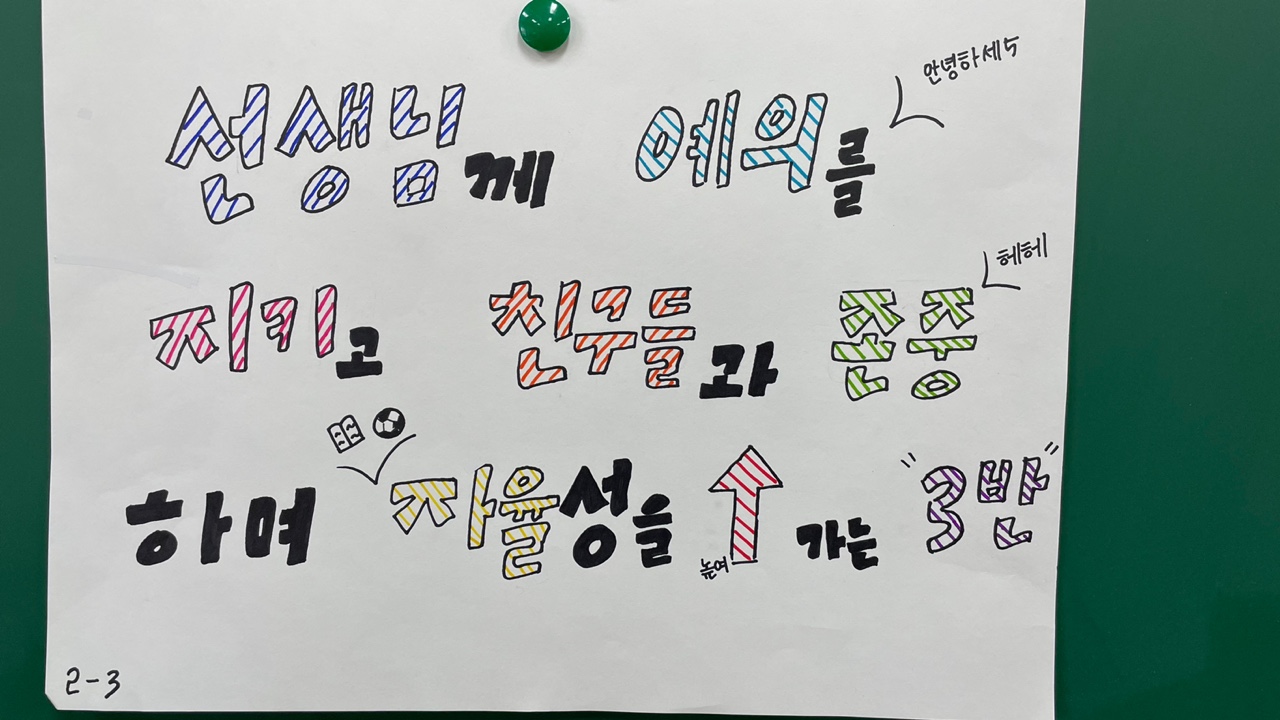 안녕하세5
선생님께 예의를
헤헤
지키고 친구들과 존중
하며 자율성을 높여 가는 "3반"
2-3